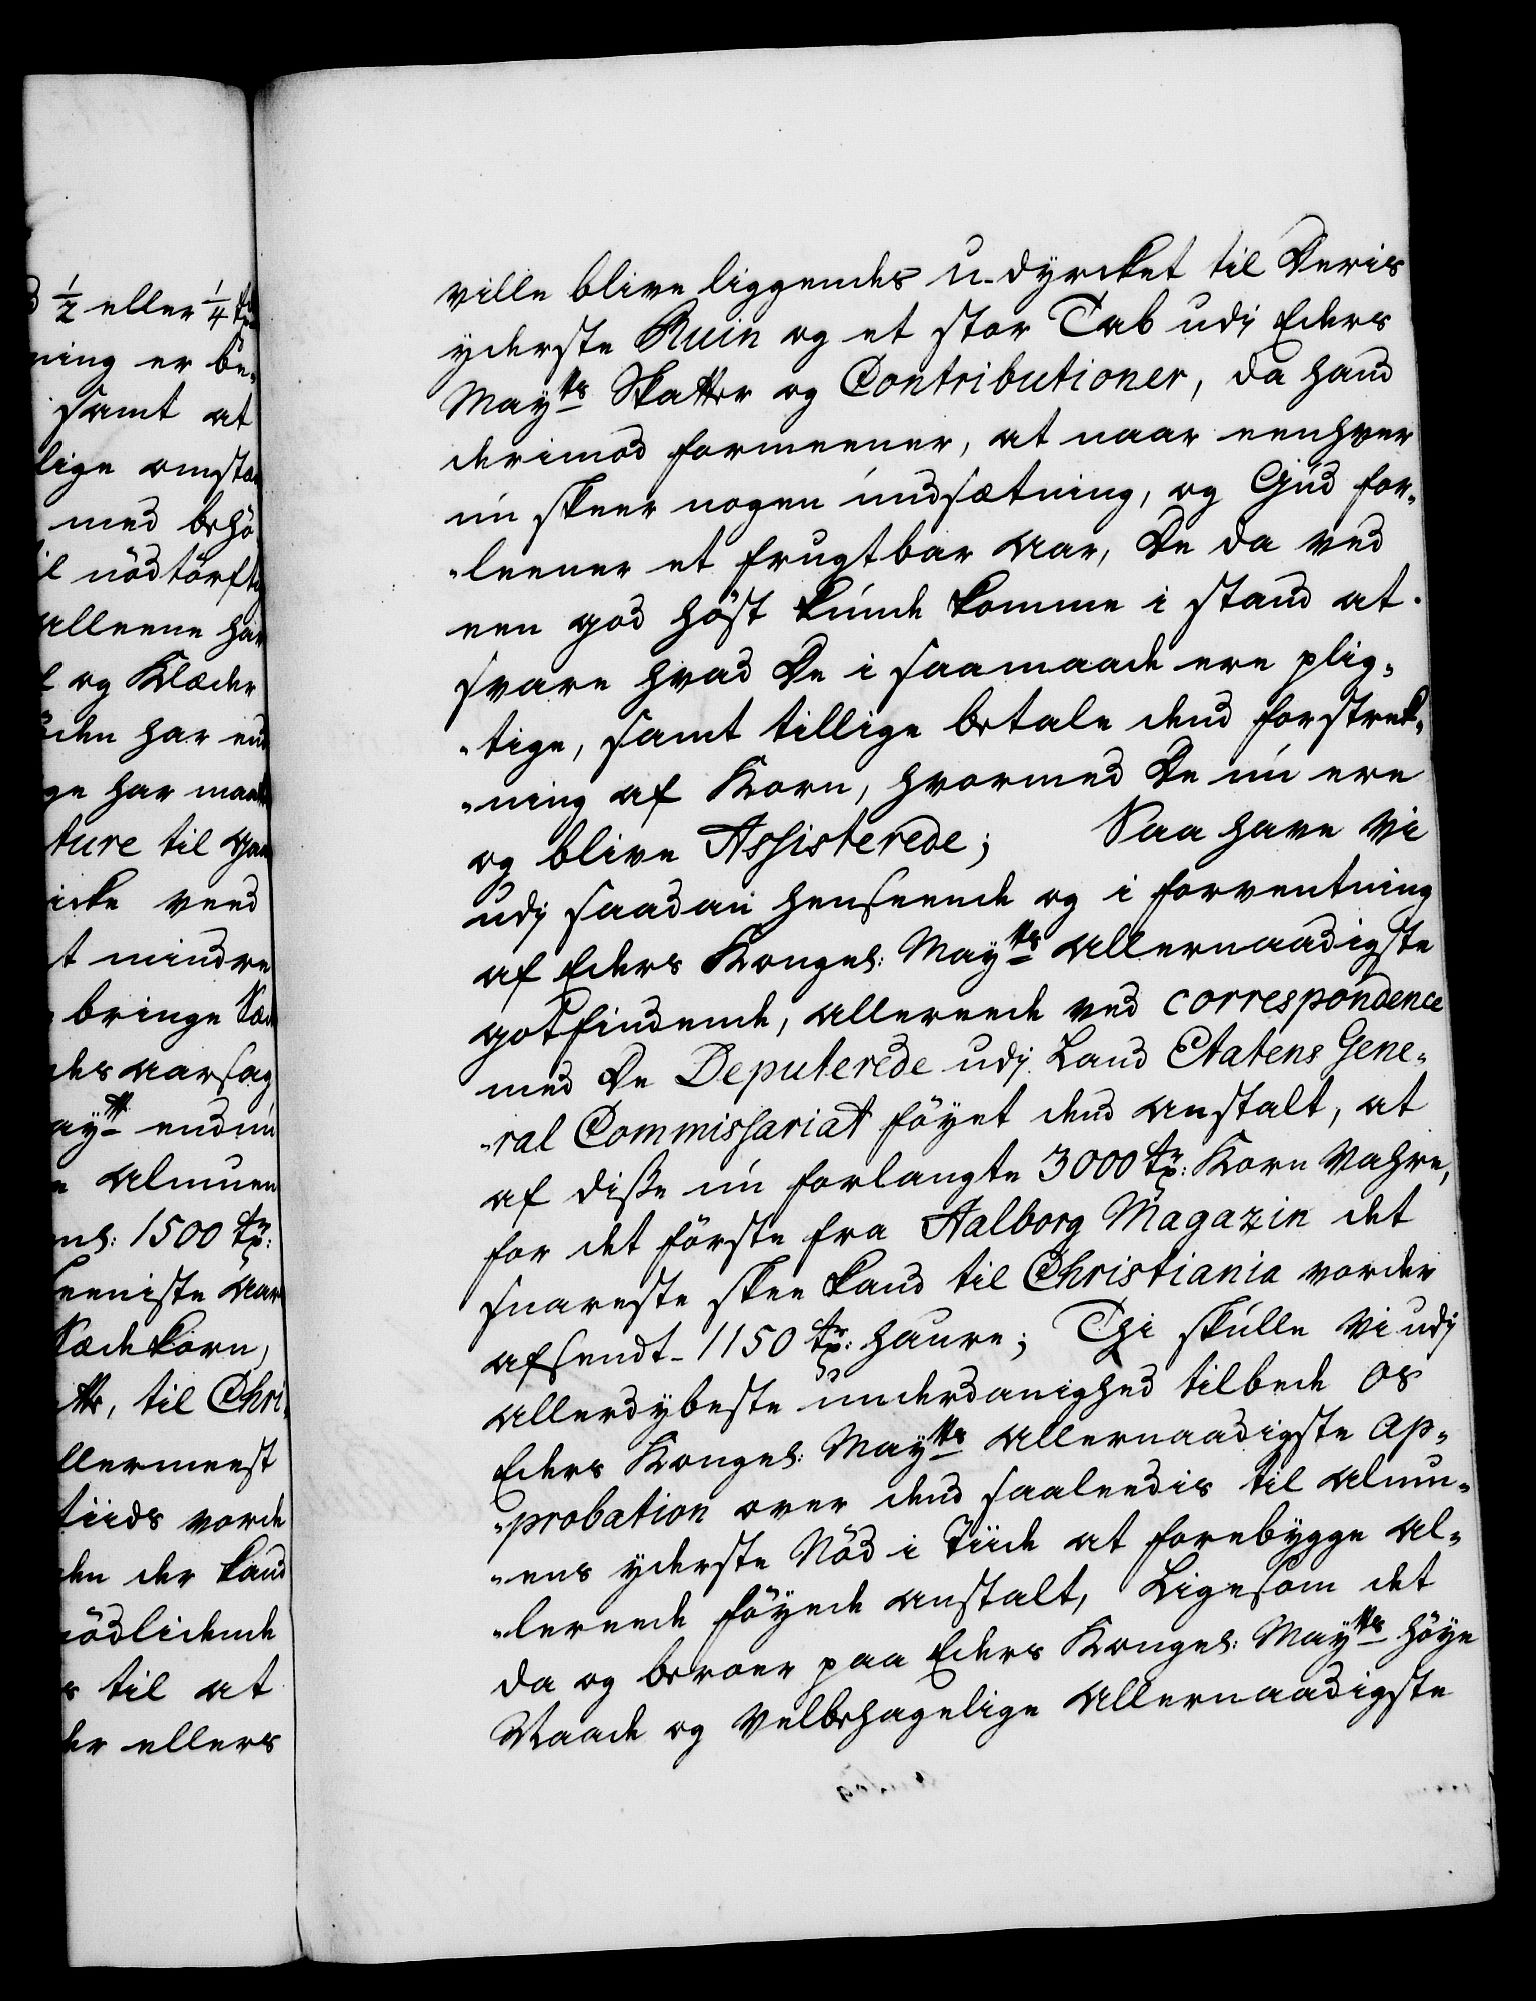 d ½ eller ¼ tde
ning er be-
samt at
lige omstæn
med behö
il nödtörfti
alleene har
f og Klæder
öden har end
ge har maatt
ture til gaa
icke veed
t mindre
bringe Sæd
des aarsag
ayts endnu
e Almuen
ns: 1500 tr:
seeniste Aar
Sædekorn,
tte, til Chri-
llermeest
tiids vorde
den der kand
nödlidende
s til at
der ellers
ville blive liggendes u-dyrcket til Deris
yderste Ruin og et stor Tab udj Eders
Mayts Skatter og Contributioner, da hand
derimod formeener, at naar eenhver
nu skeer nogen undsætning, og Gud for-
-leener et frugtbar Aar, De da ved
een god höst kunde komme i stand at
svare hvad De i saamaade ere plig-
-tige, samt tillige betale dend forstreck-
-ning af Korn, hvormed De nu ere
og blive Assisterede; Saa have Vi
udj saadan henseende og i forventning
af Eders Kongel: Mayts Allernaadigste
gotfindende, allereede ved correspondence
med De Deputerede udj Land Etatens Gene-
-ral Commissariat föyet dend anstalt, at
af disse nu forlangte 3000 tr: Korn Vahre,
for det förste fra Aalborg Magazin det
snareste skee kand til Christiania vorder
afsendt 1150 tr: haure; Thi skulle Vi udj
allerdybeste underdanighed tilbede os
Eders Kongel: Mayts Allernaadigste Ap-
-probation over dend saaleedis til Almu-
-ens yderste Nöd i Tiide at forebygge al-
-lereede föyede anstalt, Ligesom det
da og beroer paa Eders Kongel: Mayts höye
Naade og Velbehagelige Allernaadigste